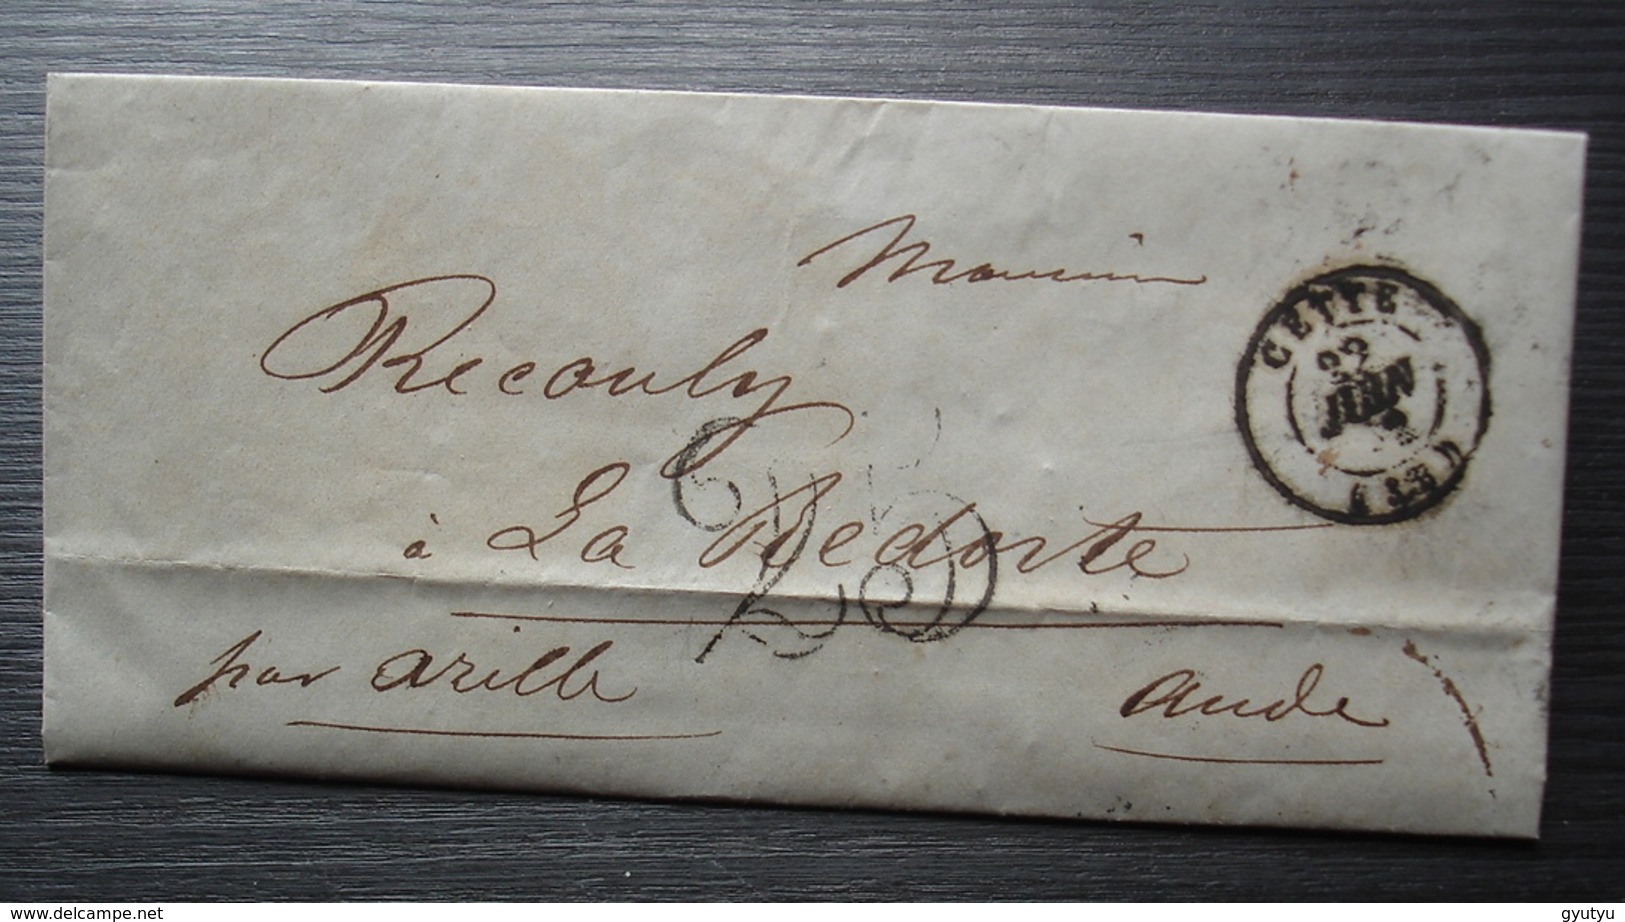 Monsieur
Recouly
à La Redorte
par azille
Aude
CETTE
22
JUIN
25
delcampe.net
gyutyu